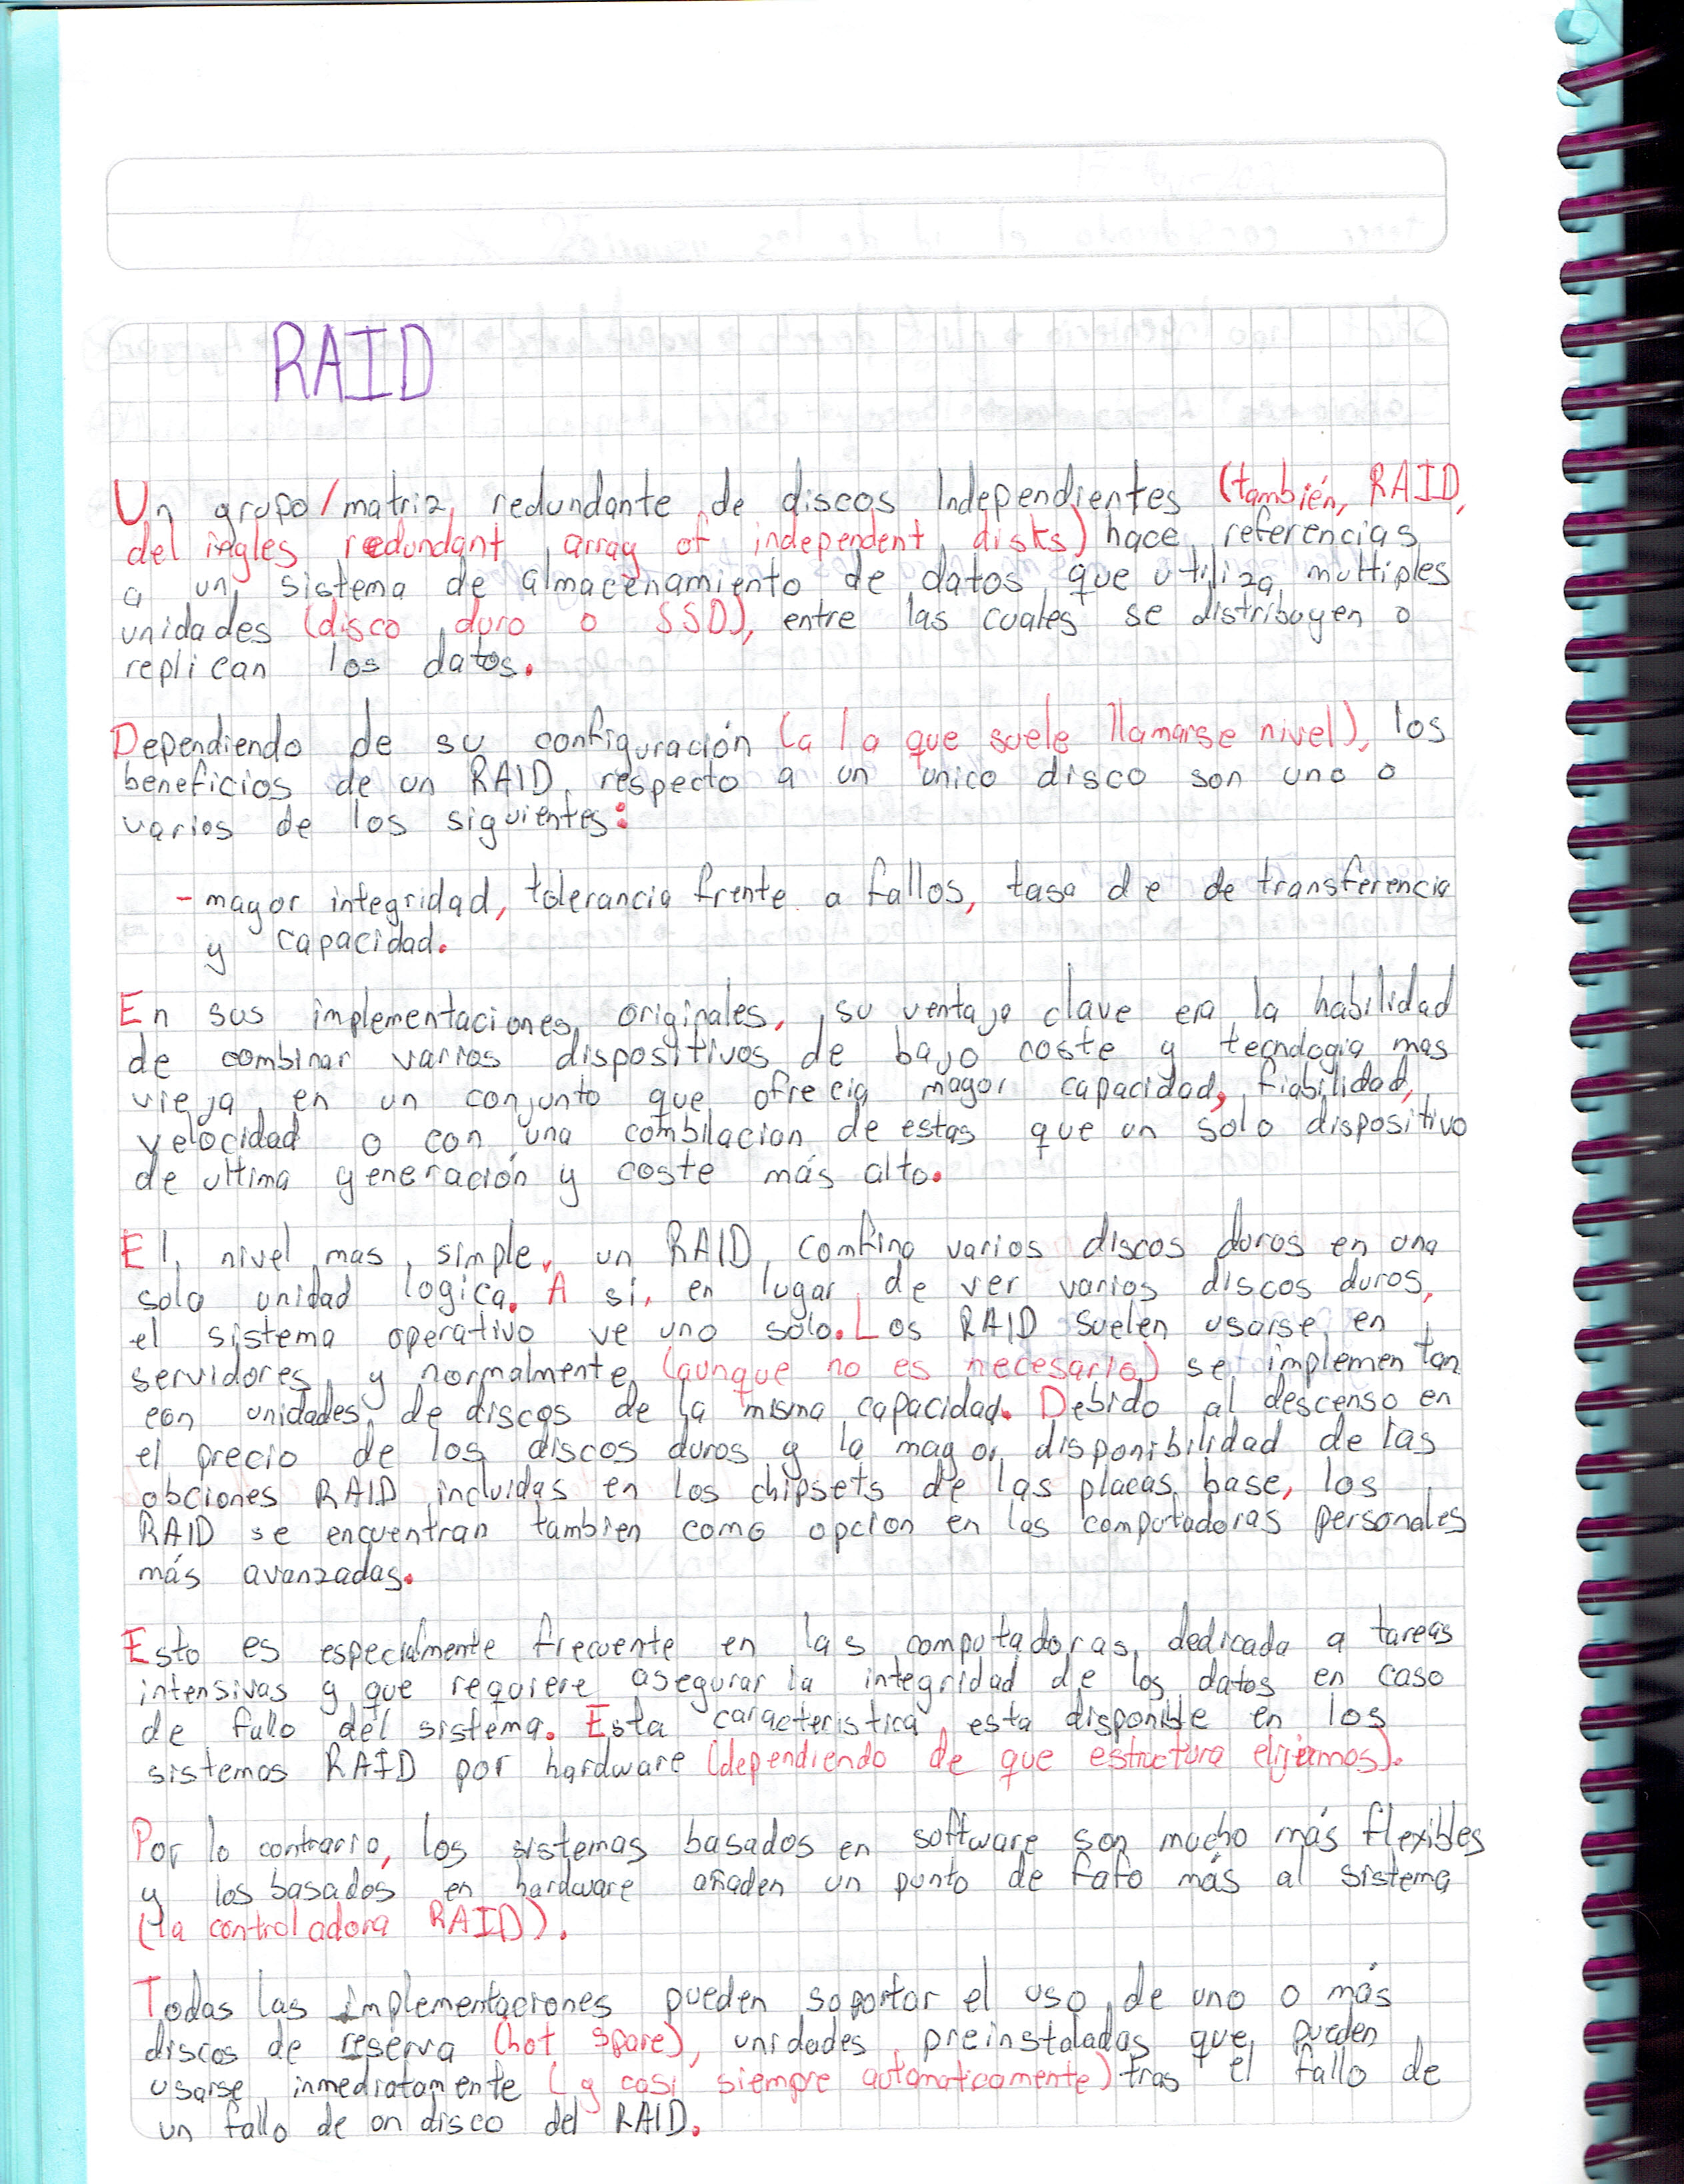 RAID
Un grupo/matriz redundante de discos Independientes (también, RAID,
del ingles redundant array of independent disks) hace referencias
a un sistema de almacenamiento de datos que utiliza multiples
unidades (disco duro o SSD), entre las cuales se distribuyen o
replican los datos.
Dependiendo de su configuración (a la que suele llamarse nivel), los
beneficios de un RAID respecto a un unico disco son uno o
varios de los siguientes:
- mayor integridad, tolerancia frente a fallos, tasa de de transferencia
y capacidad.
En sus implementaciones originales, su ventaja clave era la habilidad
de combinar varios dispositivos de bajo coste y tecnologia mas
vieja en un conjunto que ofrecia mayor capacidad, fiabilidad,
velocidad o con una combilacion de estas que un solo dispositivo
de ultima generación y coste más alto.
El nivel mas simple, un RAID combina varios discos duros en una
sola unidad logica. A si, en lugar de ver varios discos duros,
el sistema operativo ve uno solo. Los RAID suelen usarse en
servidores y normalmente (aunque no es necesario) se implementan
con unidades de discos de la misma capacidad. Debido al descenso en
el precio de los discos duros y la mayor disponibilidad de las
obciones RAID incluidas en los chipsets de las placas base, los
RAID se encuentran tambien como opcion en las computadoras personales
más avanzadas.
Esto es especialmente frecuente en las computadoras dedicada a tareas
intensivas y que requiere asegurar la integridad de los datos en caso
de fallo del sistema. Esta caracteristica esta disponible en los
sistemas RAID por hardware (dependiendo de que estructura elijamos).
Por lo contrario, los sistemas basados en software son mucho más flexibles
y los basados en hardware añaden un punto de fafo más al sistema
(la controladora RAID).
Todas las Implementaciones pueden soportar el uso de uno o más
discos de reserva (hot spare), unidades preinstaladas que pueden
usarse inmediatamente (y casi siempre automaticamente) tras el fallo de
un fallo de un disco del RAID.